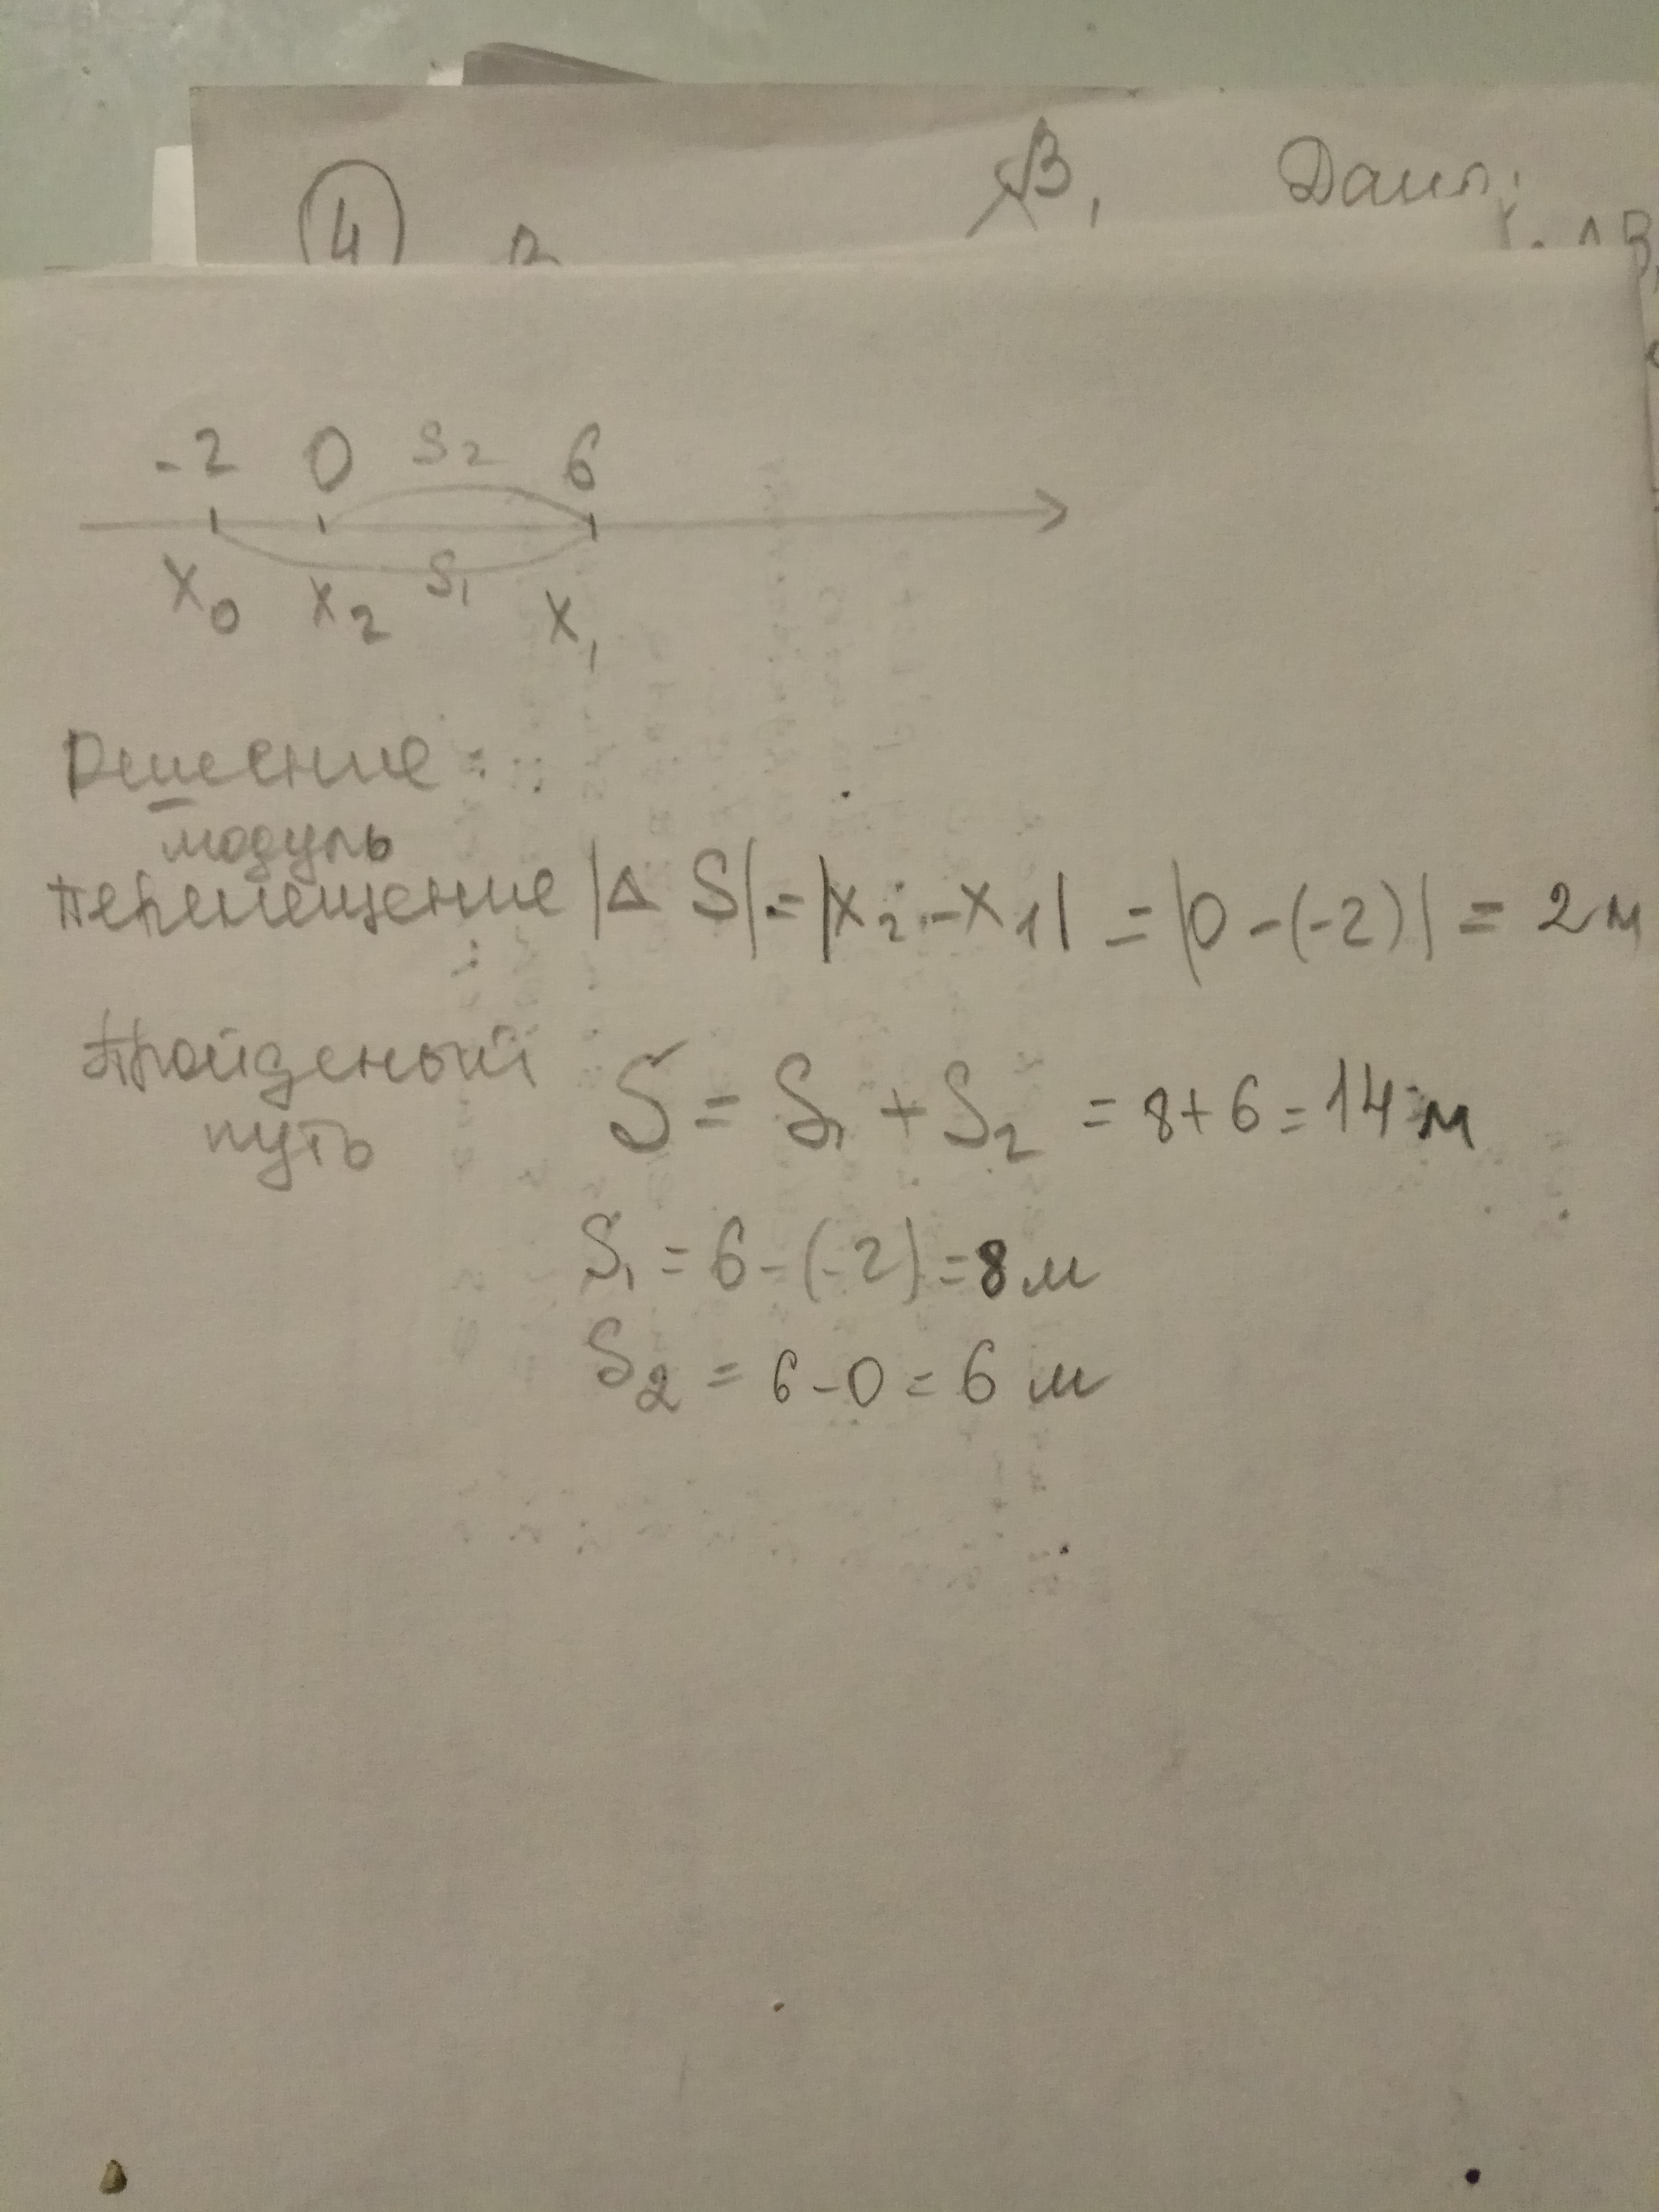 4
B₁ Дано:
-2 0 S₂ 6
x₀ x₂ S₁ x₁
Решение:
модуль
перемещение |Δ S| = |x₂ - x₁| = |0 - (-2)| = 2 м
Пройденый S = S₁ + S₂ = 8 + 6 = 14 м
путь
S₁ = 6 - (-2) = 8 м
S₂ = 6 - 0 = 6 м